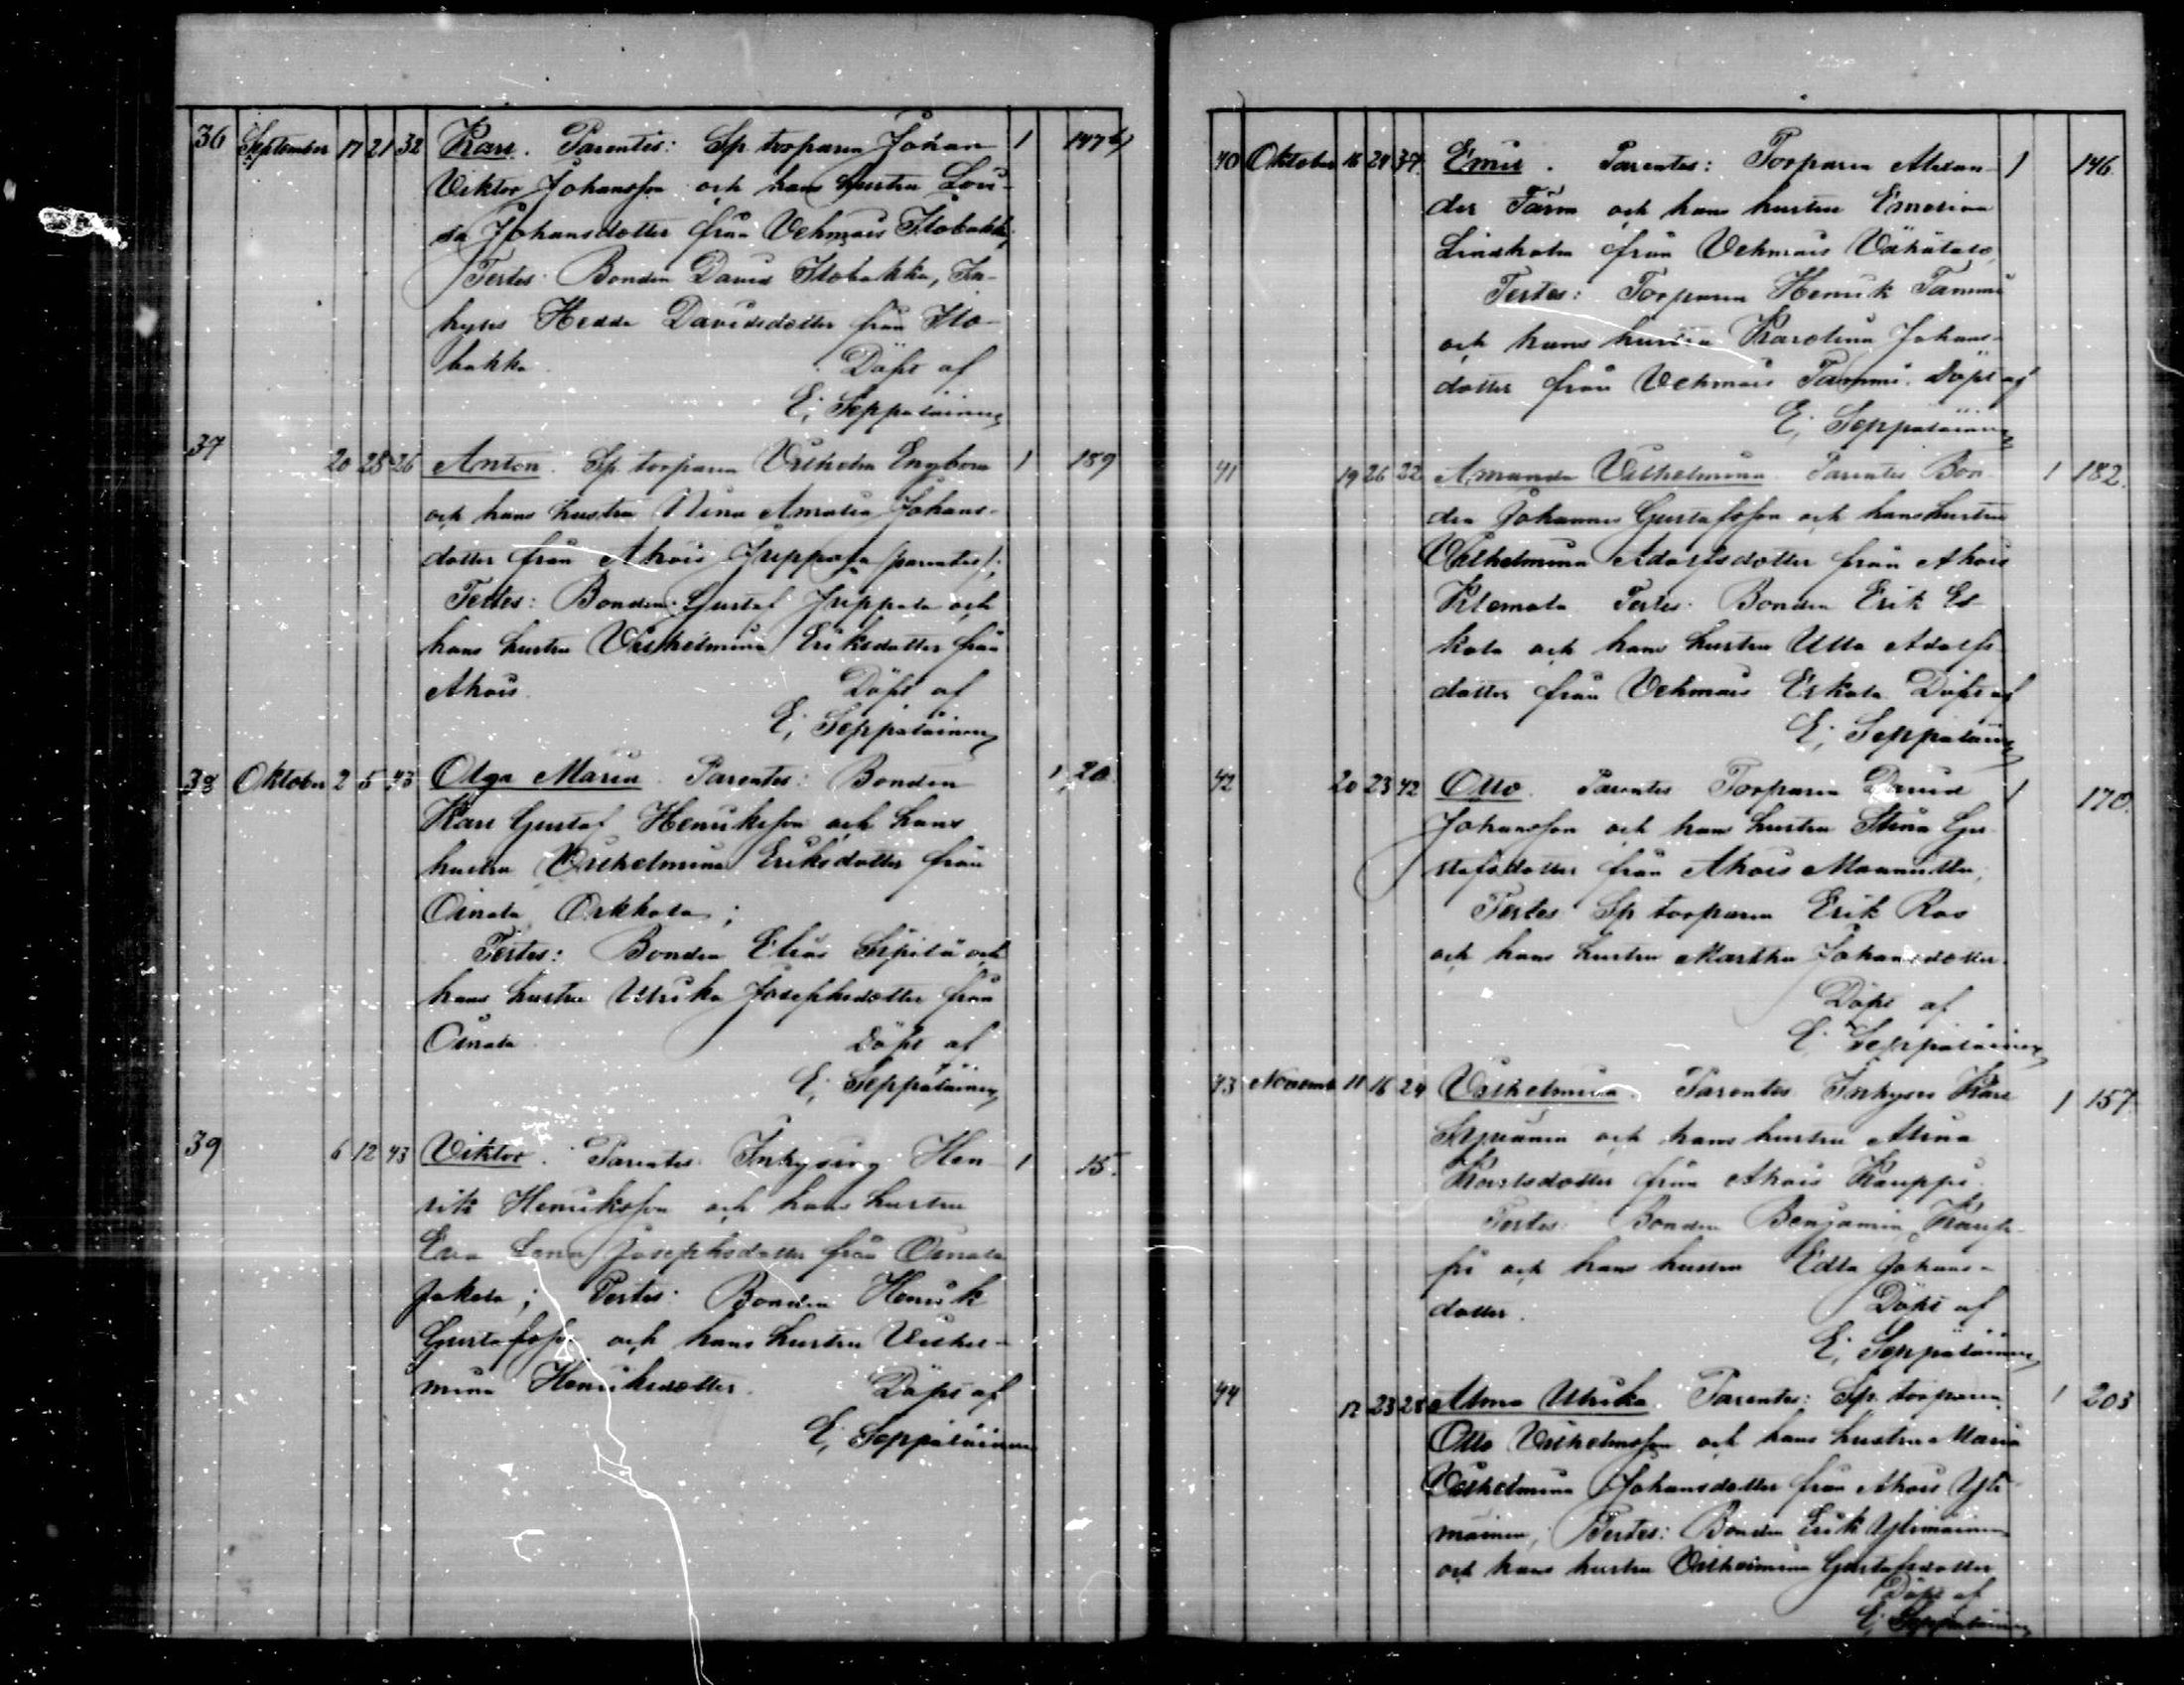 36 September 17 21 32 Karl. Parentes: Sp. torparen Johan 1 147 b)
Viktor Johansson och hans hustru Lovi-
sa Johansdotter från Vehmais Isobakka;
Testes: Bonden David Isobakka, In-
hyses Hedda Davidsdotter från Iso-
bakka. Döpt af
E. Seppäläinen
37 20 28 26 Anton. Sp. torparen Vilhelm Engblom 1 189
och hans hustru Nina Amalia Johans-
dotter från Ahois Juppala (parentes);
Testes: Bonden Gustaf Juppala och
hans hustru Vilhelmina Eriksdotter från
Ahois. Döpt af
E. Seppäläinen
38 Oktober 2 5 43 Olga Maria. Parentes: Bonden 1 20
Karl Gustaf Henriksson och hans
hustru Vilhelmina Eriksdotter från
Oinala Orkkola;
Testes: Bonden Elias Sipilä och
hans hustru Ulrika Josephsdotter från
Oinala. Döpt af
E. Seppäläinen
39 6 12 43 Viktor. Parentes: Inhysing Hen- 1 15.
rik Henriksson och hans hustru
Eva Lena Josephsdotter från Oinala
Jakola; Testes: Bonden Henrik
Gustafsson och hans hustru Vilhel-
mina Henriksdotter. Döpt af
E. Seppäläinen
40 Oktober 16 24 37. Emil. Parentes: Torparen Alexan- 1 146
der Färm och hans hustru Emerina
Lindholm från Vehmais
Testes: Torparen Henrik Tammi
och hans hustru Karolina Johans-
dotter från Vehmais Tammi. Döpt af
E. Seppäläinen
41 19 26 22 Amanda Vilhelmina. Parentes Bon- 1 182.
den Johannes Gustafsson och hans hustru
Vilhelmina Adolfsdotter från Ahois
Klemola Testes: Bonden Erik Es-
kola och hans hustru Ulla Adolfs-
dotter från Vehmais Eskola. Döpt af
E. Seppäläinen
42 20 23 42 Otto. Parentes Torparen David 1 170.
Johansson och hans hustru Stina Gu-
stafsdotter från Ahois
Testes: Sp torparen Erik Ras
och hans hustru Martha Johansdotter.
Döpt af
E. Seppäläinen
43 Novemb 11 16 24 Vilhelmina. Parentes Inhyses Karl 1 157.
och hans hustru
Karlsdotter från Ahois Kauppi.
Testes: Bonden Benjamin Kaup-
pi och hans hustru Edla Johans-
dotter. Döpt af
E. Seppäläinen
44 12 23 28 Alma Ulrika. Parentes: Sp. torparen 1 203
Otto Vilhelmsson och hans hustru Maria
Vilhelmina Johansdotter från Ahois Yli-
mäinen; Testes: Bonden Erik Ylimäinen
och hans hustru Vilhelmina Gustafsdotter
Döpt af
E. Seppäläinen